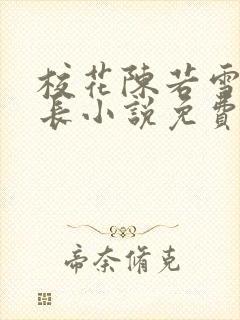 校花陳若雪
長小說免費
帝奈脩克